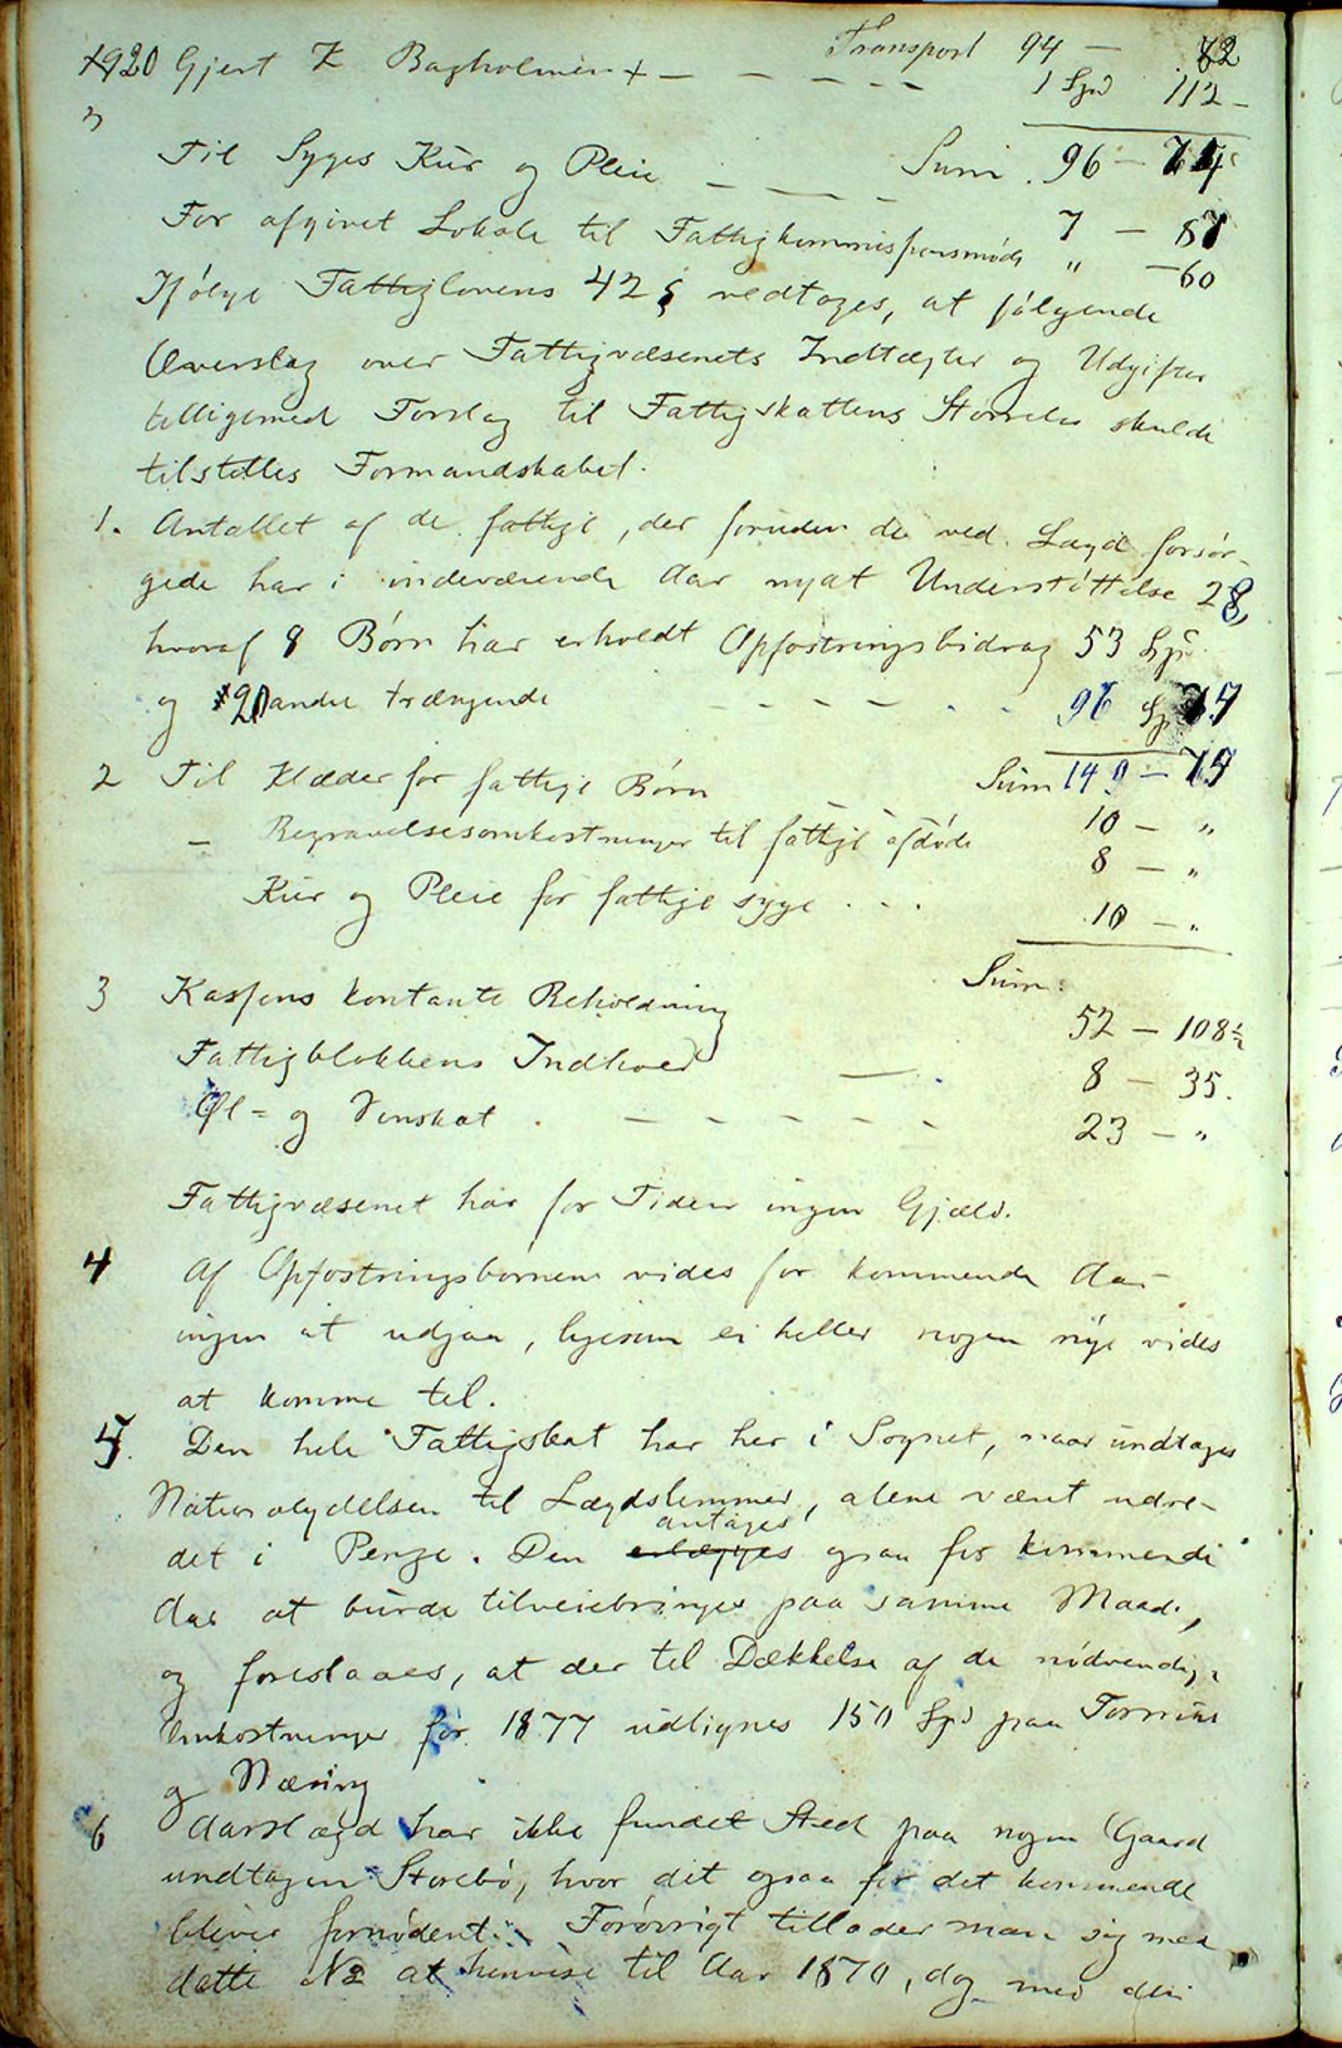 Transport 94 — 72
1920 Gjert K Bagholmen + — — — — — 1 Spd 112 —
Sum. 96 — 74
3 Til Syges Kur og Pleie — — — 7 — 87
For afgivet Lokale til Fattigkommissionsmøde " — 60
Ifølge Fattiglovens 42 § vedtoges, at følgende
Overslag over Fattigvæsenets Indtægter og Udgifter
tilligemed Forslag til Fattigskattens Størrelse skulde
tilstilles Formandskabet.
1. Antallet af de fattige, der foruden de ved Lægd forsør-
gede har i indeværende Aar nydt Understøttelse 28,
hvoraf 8 Børn har erholdt Opfostringsbidrag 53 Spd
og 20 andre trængende — — — — 96 Sp 74
Sum 149 — 74
2 Til Klæder for fattige Børn — — — 10 — "
— Begravelsesomkostninger til fattige afdøde 8 — "
Kur og Pleie for fattige syge . . . 10 — "
Sum:
3 Kassens kontante Beholdning 52 — 108½
Fattigblokkens Indhold — . 8 — 35.
Øl- og Vinskat . — — — — — 23 — "
Fattigvæsenet har for Tiden ingen Gjæld.
4 Af Opfostringsbørnene vides for kommende Aar
ingen at udgaa, ligesom ei heller nogen nye vides
at komme til.
5. Den hele Fattigskat har her i Sognet, naar undtages
Naturalydelsen til Lægdslemmer, alene været udre-
antages
det i Penge. Den erlægges ogsaa for kommende
Aar at burde tilveiebringes paa samme Maade,
og foreslaaes, at der til Dækkelse af de nødvendige
Omkostninger for 1877 udlignes 150 Spd paa Formue
og Næring
6 Aarslægd har ikke fundet Sted paa nogen Gaard
undtagen Storebø, hvor det ogsaa for det kommende
bliver fornødent. Forøvrigt tillader man sig med
dette No at henvise til Aar 1870, dog med den